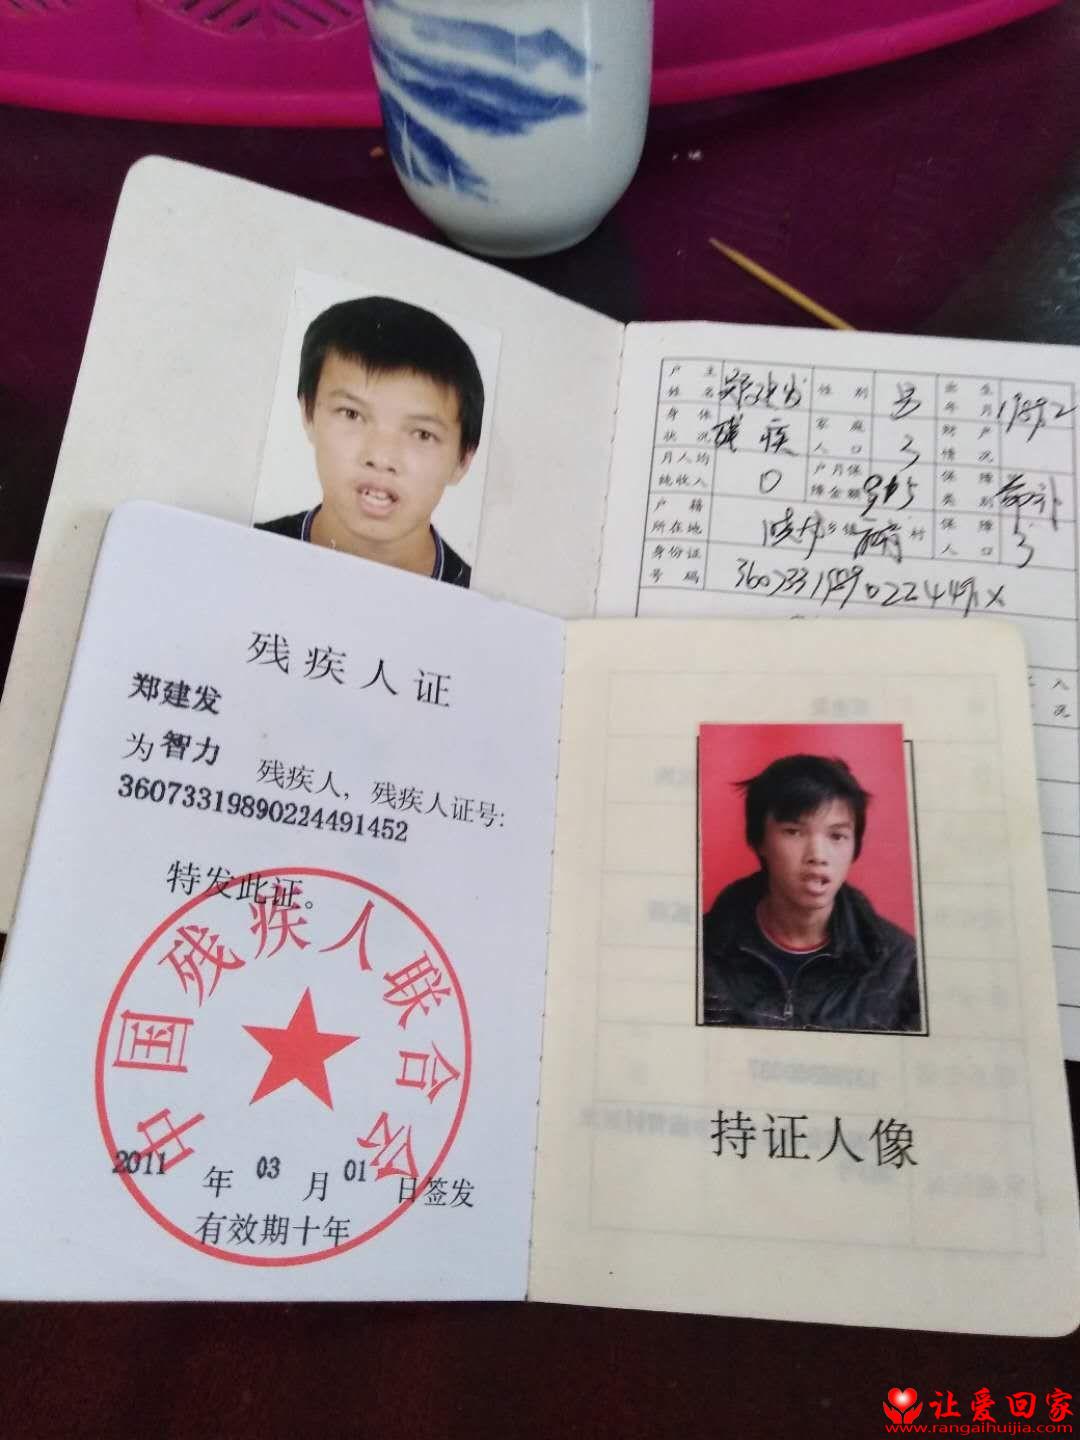 户主姓名 郑建发 性别 男 出生年月 1989.2
身体状况 残疾 家庭人口 3 财产情况
月人均纯收入 0 户月保障金额 保障类别
户籍所在地 乡镇 村 保障人口 3
身份证号码 36073319890224491X
残疾人证
郑建发
为 智力 残疾人，残疾人证号:
36073319890224491452
特发此证。
中国残疾人联合会
2011 年 03 月 01 日签发
有效期十年
持证人像
让爱回家
www.rangaihuijia.com